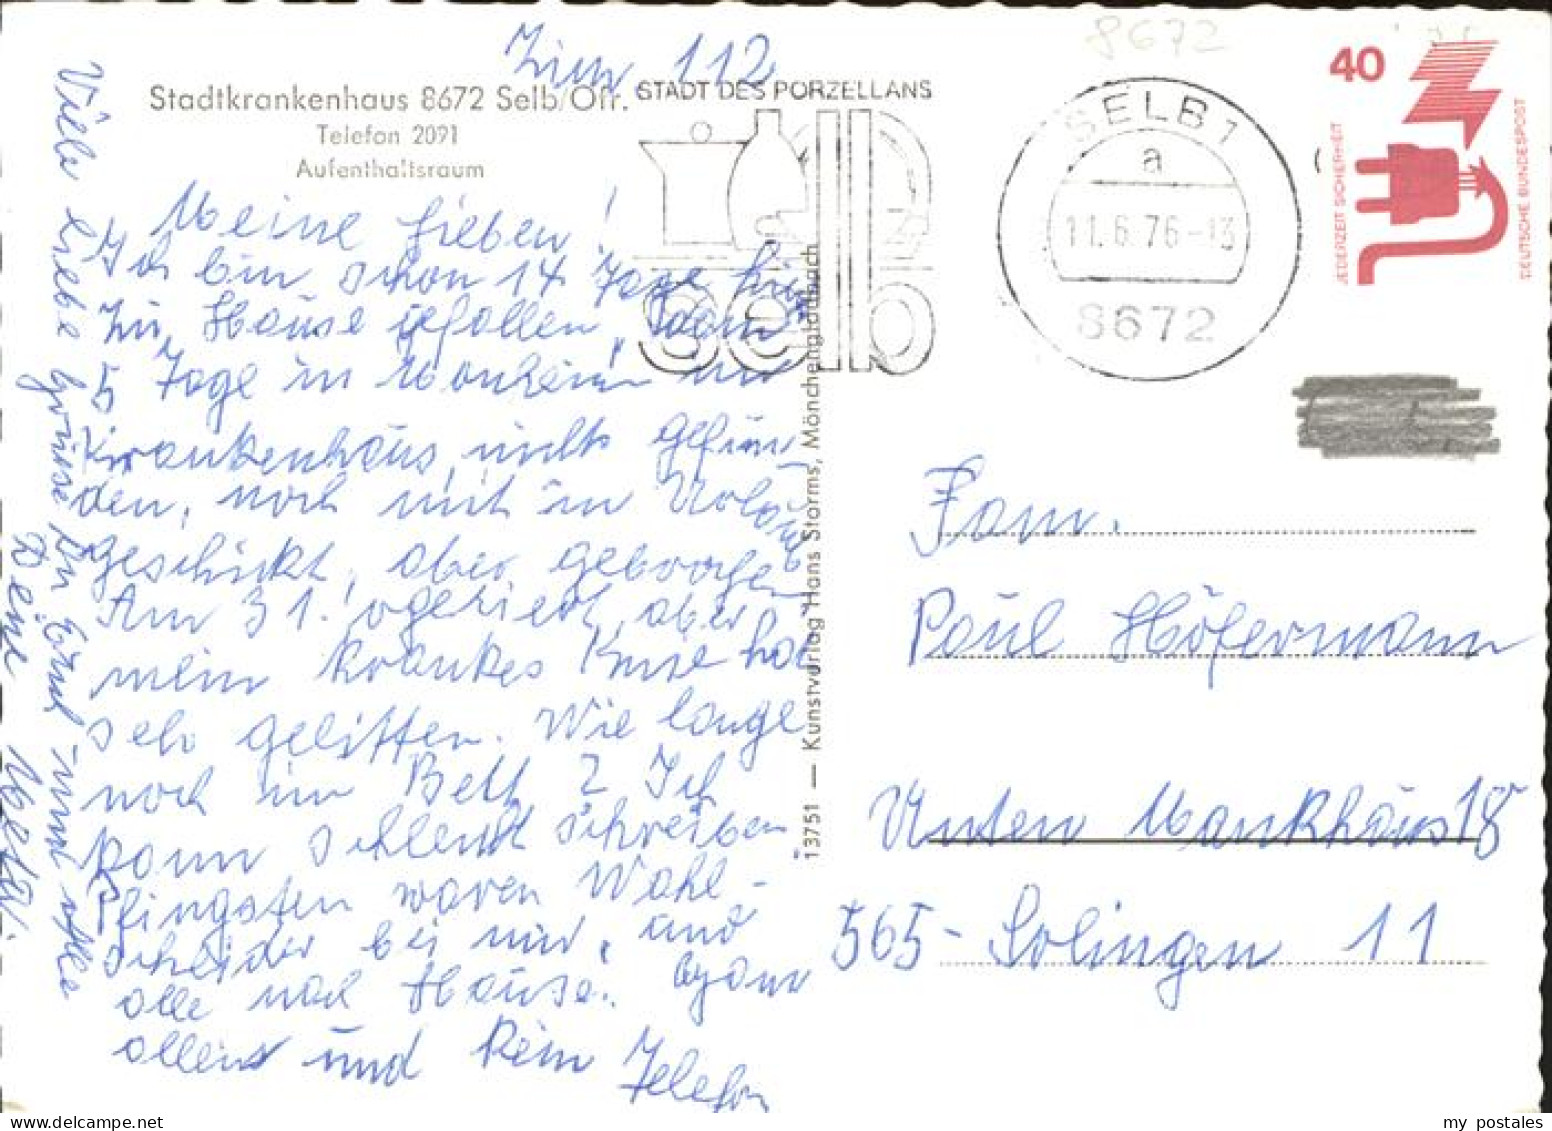 8672
Zim 112
Stadtkrankenhaus 8672 Selb/Ofr.
Telefon 2091
Aufenthaltsraum
STADT DES PORZELLANS
selb
SELB 1
a
11.6.76-13
8672
40
JEDERZEIT SICHERHEIT
DEUTSCHE BUNDESPOST
Meine Lieben!
Ich bin schon 14 Tage hier
Im Hause gefallen, dann
5 Tage in im
Krankenhaus, nichts gefun-
den, noch mit in Urlaub
geschickt, aber gebrochen
Am 31. ogeriert, aber
mein krankes Knie hat
sehr gelitten. Wie lange
noch im Bett? Ich
kann schlecht schreiben
Pfingsten waren Wahl-
scheider bei mir, und
alle nach Hause. Ganz
allein und kein Telefon
Viele liebe Grüsse Dir, Erich und alle
Deine
13751 — Kunstverlag Hans Storms, Mönchengladbach
Fam.
Paul Höfermann
Unten Mankhaus 18
565- Solingen 11
my postales